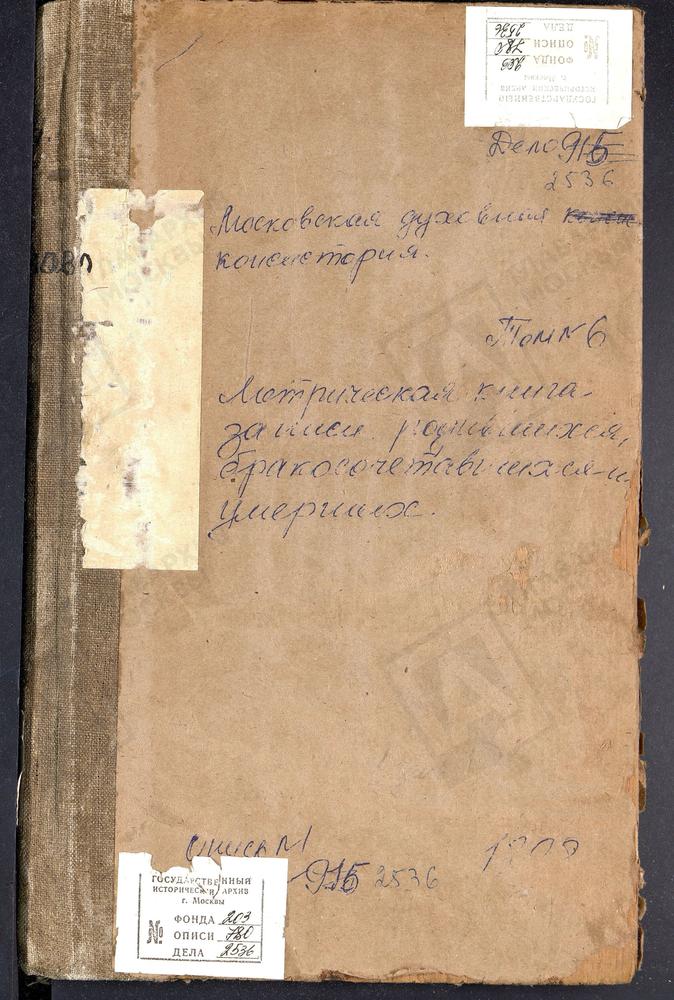 ГОСУДАРСТВЕННЫЙ
ИСТОРИЧЕСКИЙ АРХИВ
г. Москвы
№
ФОНДА 203
ОПИСИ 780
ДЕЛА 2536
Дело 915
2536
Московская духовная
консистория.
Том № 6
Метрическая книга
записи родившихся,
бракосочетавшихся и
умерших.
Опись №1
915 2536
ГОСУДАРСТВЕННЫЙ
ИСТОРИЧЕСКИЙ АРХИВ
г. Москвы
№
ФОНДА 203
ОПИСИ 780
ДЕЛА 2536